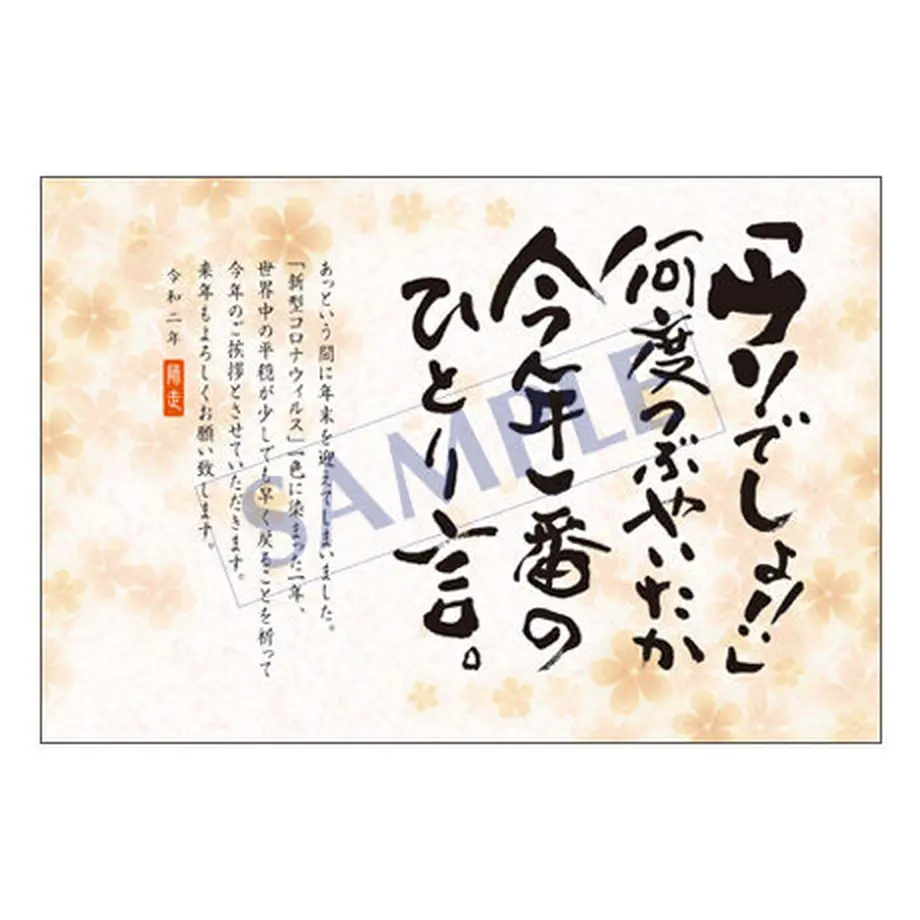 「ウソでしょ!!」
何度つぶやいたか
今年一番の
ひとり言。
あっという間に年末を迎えてしまいました。
「新型コロナウィルス」一色に染まった一年、
世界中の平穏が少しでも早く戻ることを祈って
今年のご挨拶とさせていただきます。
来年もよろしくお願い致します。
令和二年
師走
SAMPLE